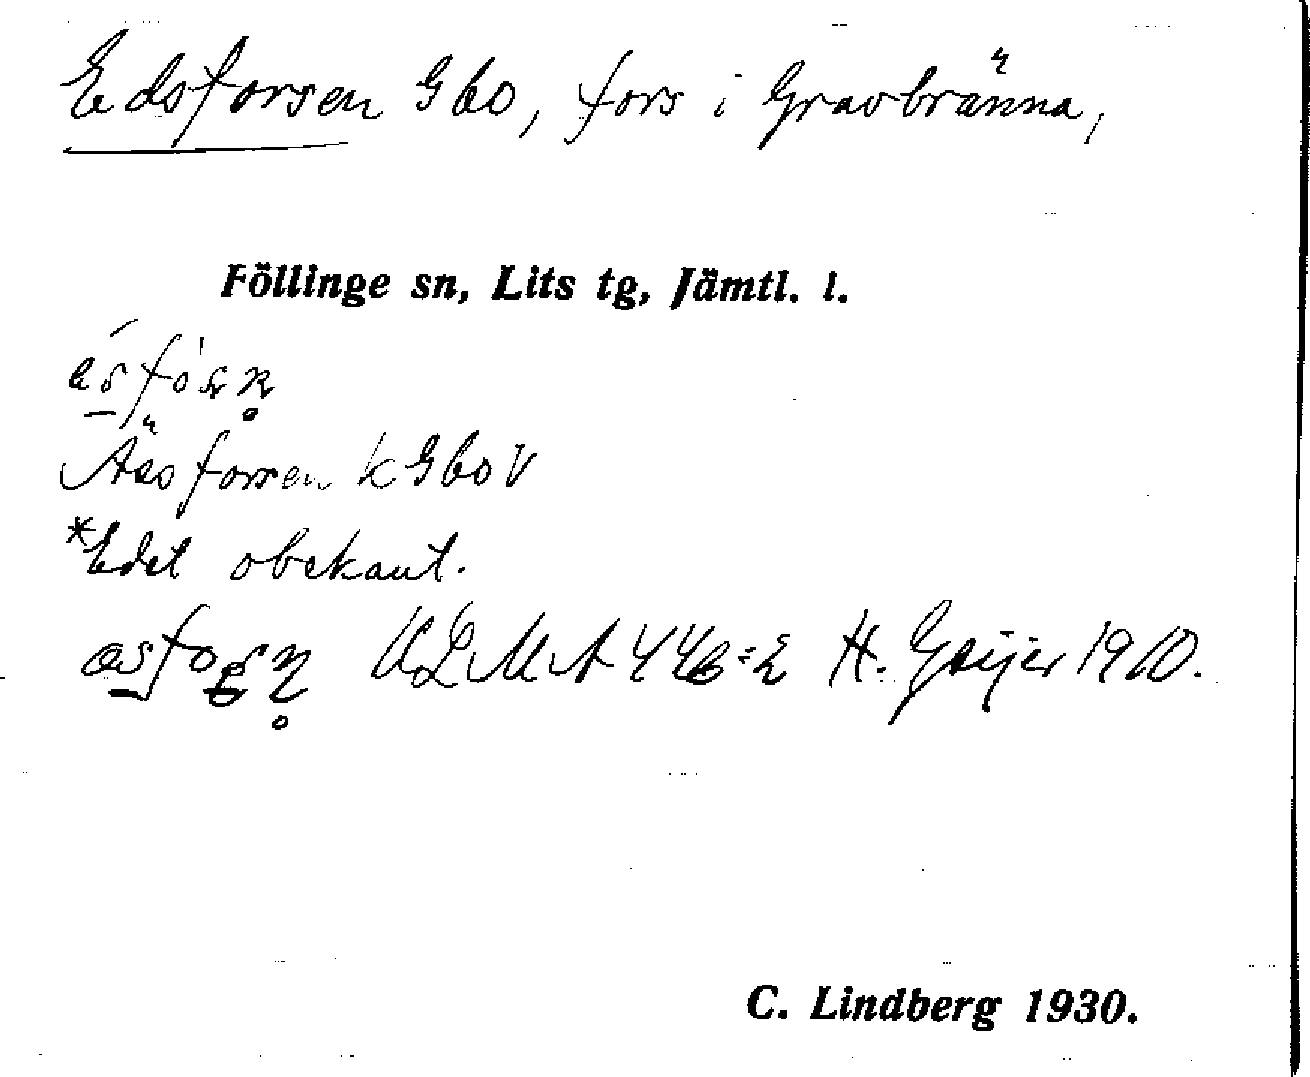 Edsforsen Gbo, fors i Gravbränna,
Föllinge sn, Lits tg, Jämtl. l.
Äsforsen k Gbo V
*Edet obekant.
ULMA 446:2 H. Geijer 1910.
C. Lindberg 1930.